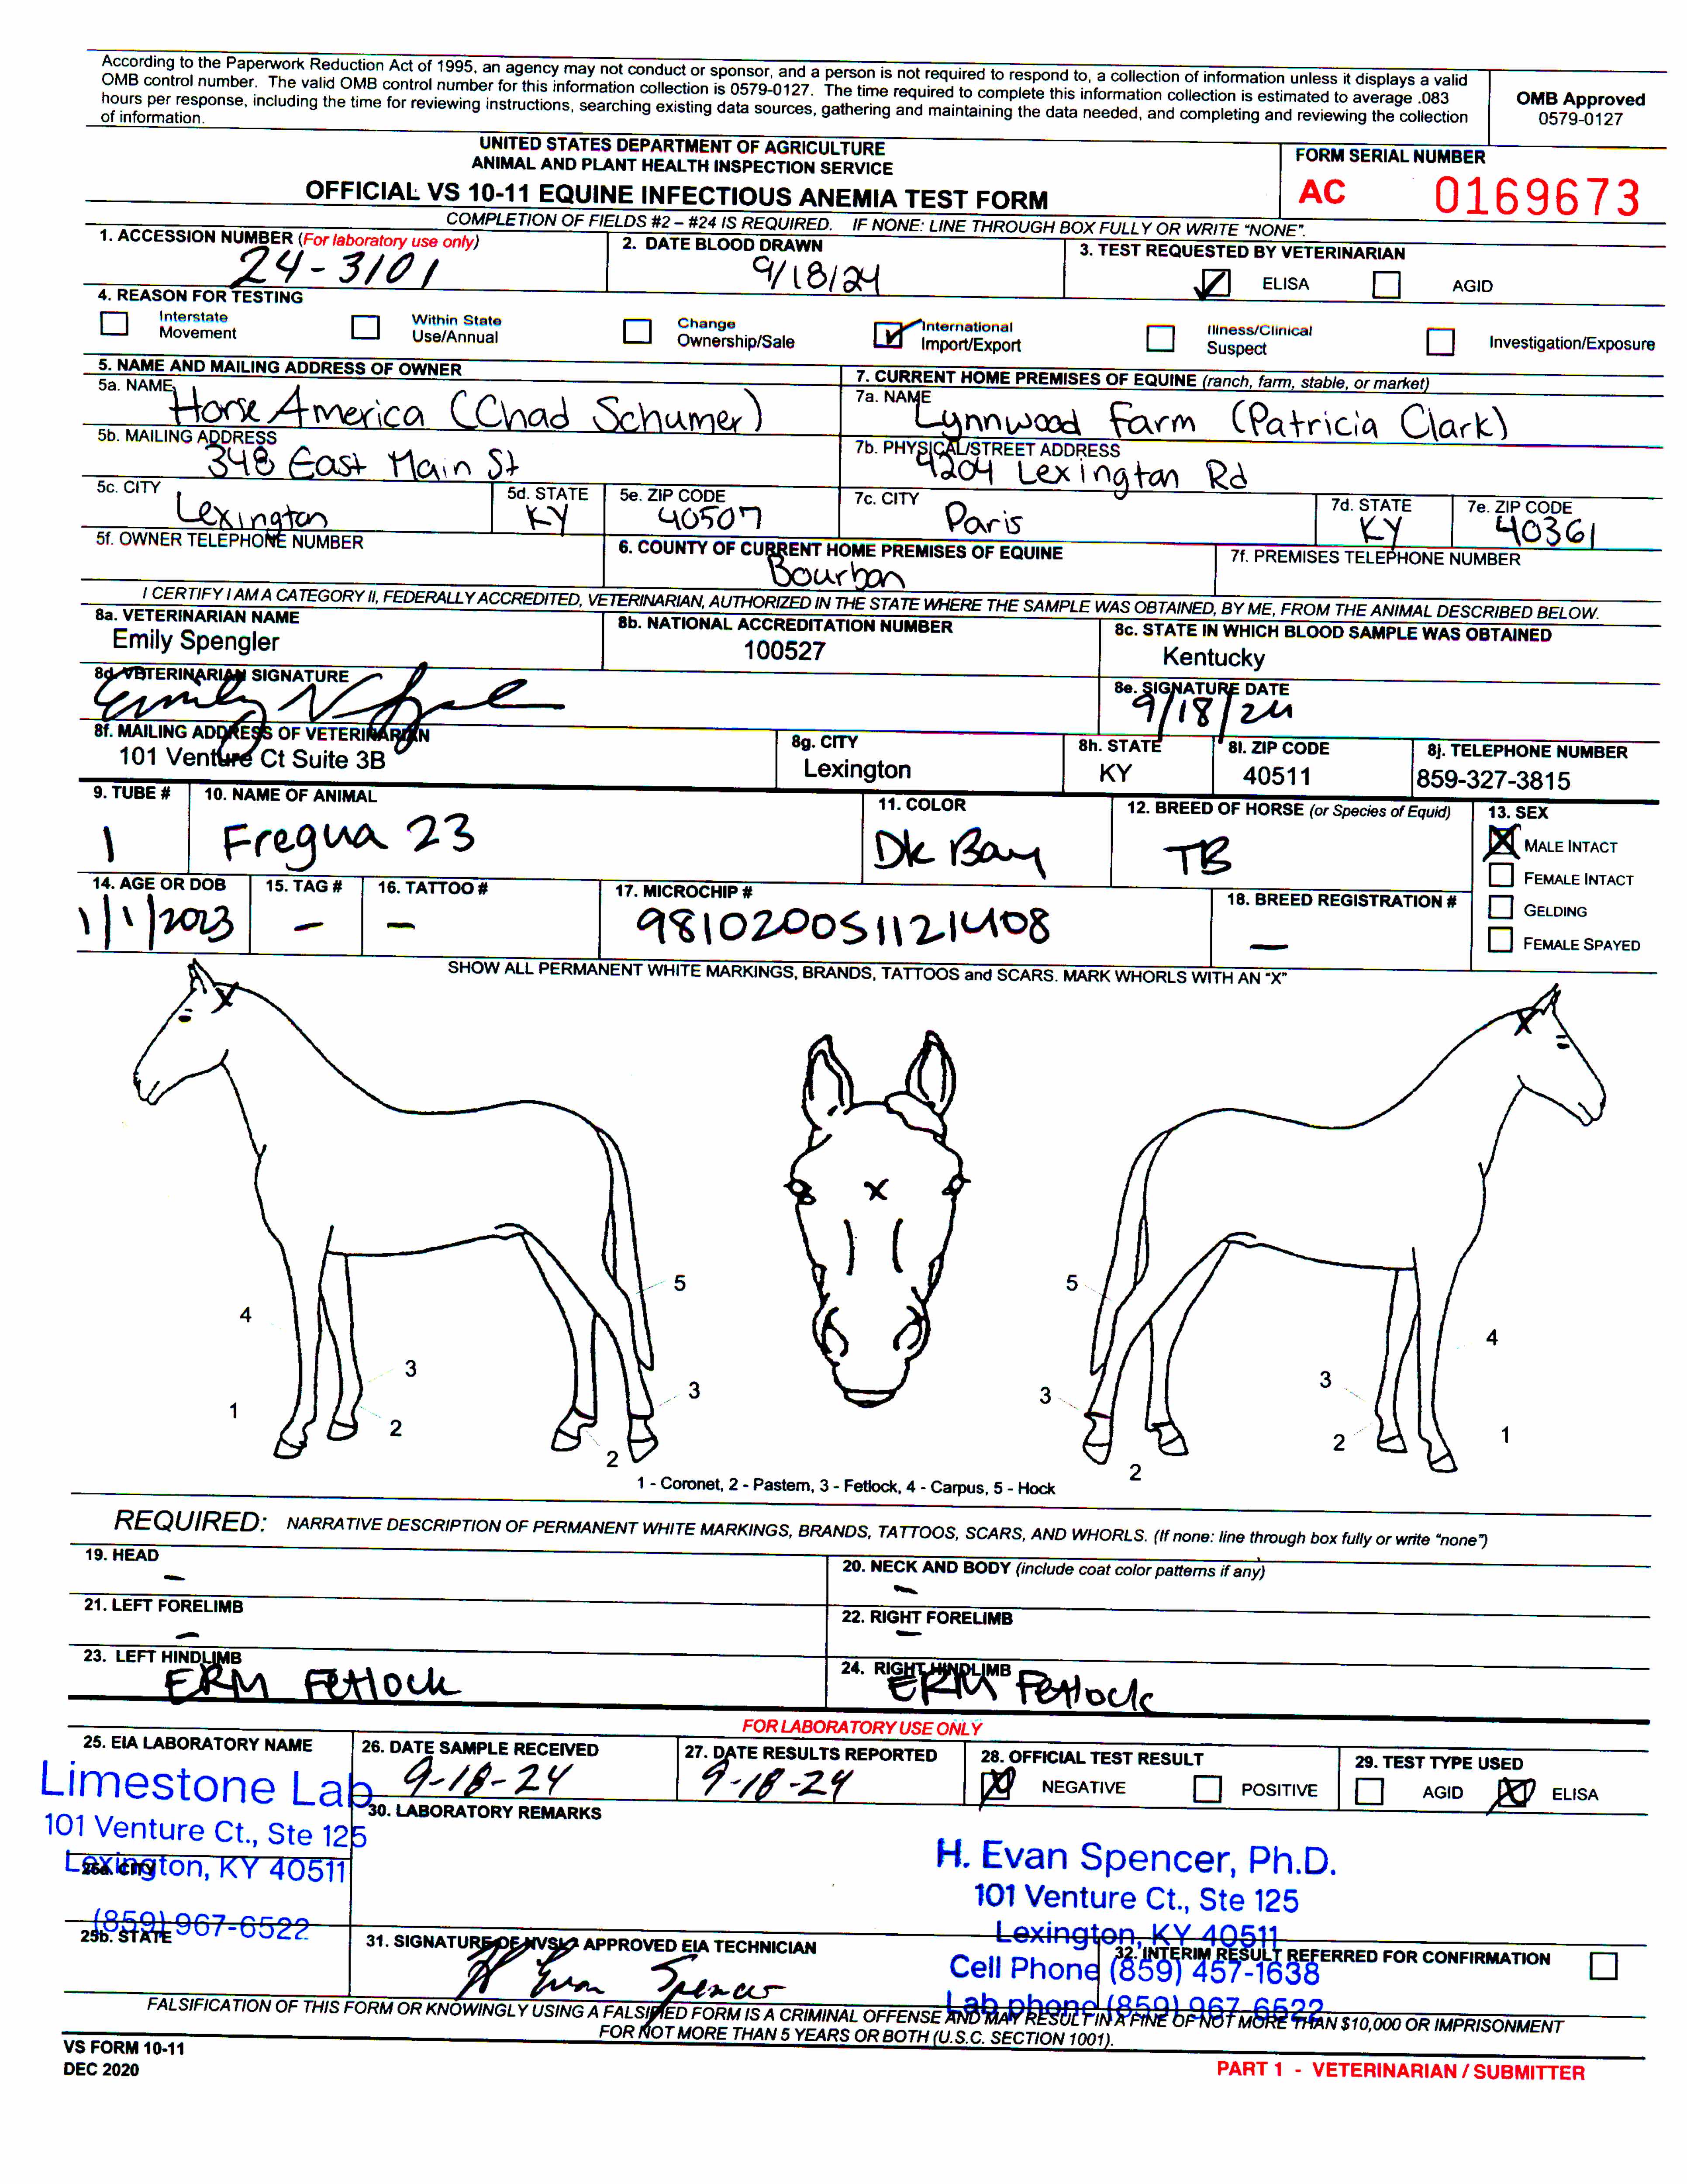 According to the Paperwork Reduction Act of 1995, an agency may not conduct or sponsor, and a person is not required to respond to, a collection of information unless it displays a valid
OMB control number. The valid OMB control number for this information collection is 0579-0127. The time required to complete this information collection is estimated to average .083
hours per response, including the time for reviewing instructions, searching existing data sources, gathering and maintaining the data needed, and completing and reviewing the collection
of information.
OMB Approved
0579-0127
UNITED STATES DEPARTMENT OF AGRICULTURE
ANIMAL AND PLANT HEALTH INSPECTION SERVICE
OFFICIAL VS 10-11 EQUINE INFECTIOUS ANEMIA TEST FORM
FORM SERIAL NUMBER
AC 0169673
COMPLETION OF FIELDS #2 – #24 IS REQUIRED. IF NONE: LINE THROUGH BOX FULLY OR WRITE "NONE".
1. ACCESSION NUMBER (For laboratory use only)
24-3101
2. DATE BLOOD DRAWN
9/18/24
3. TEST REQUESTED BY VETERINARIAN
ELISA AGID
4. REASON FOR TESTING
Interstate Movement
Within State Use/Annual
Change Ownership/Sale
International Import/Export
Illness/Clinical Suspect
Investigation/Exposure
5. NAME AND MAILING ADDRESS OF OWNER
5a. NAME
Horse America (Chad Schumer)
5b. MAILING ADDRESS
348 East Main St
5c. CITY
Lexington
5d. STATE
KY
5e. ZIP CODE
40507
5f. OWNER TELEPHONE NUMBER
6. COUNTY OF CURRENT HOME PREMISES OF EQUINE
Bourbon
7. CURRENT HOME PREMISES OF EQUINE (ranch, farm, stable, or market)
7a. NAME
Lynnwood Farm (Patricia Clark)
7b. PHYSICAL/STREET ADDRESS
4204 Lexington Rd
7c. CITY
Paris
7d. STATE
KY
7e. ZIP CODE
40361
7f. PREMISES TELEPHONE NUMBER
I CERTIFY I AM A CATEGORY II, FEDERALLY ACCREDITED, VETERINARIAN, AUTHORIZED IN THE STATE WHERE THE SAMPLE WAS OBTAINED, BY ME, FROM THE ANIMAL DESCRIBED BELOW.
8a. VETERINARIAN NAME
Emily Spengler
8b. NATIONAL ACCREDITATION NUMBER
100527
8c. STATE IN WHICH BLOOD SAMPLE WAS OBTAINED
Kentucky
8d. VETERINARIAN SIGNATURE
8e. SIGNATURE DATE
9/18/24
8f. MAILING ADDRESS OF VETERINARIAN
101 Venture Ct Suite 3B
8g. CITY
Lexington
8h. STATE
KY
8I. ZIP CODE
40511
8j. TELEPHONE NUMBER
859-327-3815
9. TUBE #
1
10. NAME OF ANIMAL
Fregua 23
11. COLOR
Dk Bay
12. BREED OF HORSE (or Species of Equid)
TB
13. SEX
MALE INTACT
FEMALE INTACT
GELDING
FEMALE SPAYED
14. AGE OR DOB
1/1/2023
15. TAG #
–
16. TATTOO #
–
17. MICROCHIP #
981020051121408
18. BREED REGISTRATION #
–
SHOW ALL PERMANENT WHITE MARKINGS, BRANDS, TATTOOS and SCARS. MARK WHORLS WITH AN "X"
X
X
X
5
4
3
1
2
3
2
5
4
3
3
2
1
2
1 - Coronet, 2 - Pastern, 3 - Fetlock, 4 - Carpus, 5 - Hock
REQUIRED: NARRATIVE DESCRIPTION OF PERMANENT WHITE MARKINGS, BRANDS, TATTOOS, SCARS, AND WHORLS. (If none: line through box fully or write "none")
19. HEAD
–
20. NECK AND BODY (include coat color patterns if any)
–
21. LEFT FORELIMB
–
22. RIGHT FORELIMB
–
23. LEFT HINDLIMB
ERM Fetlock
24. RIGHT HINDLIMB
ERM Fetlock
FOR LABORATORY USE ONLY
25. EIA LABORATORY NAME
Limestone Lab
101 Venture Ct., Ste 125
Lexington, KY 40511
(859) 967-6522
25a. CITY
25b. STATE
26. DATE SAMPLE RECEIVED
9-18-24
27. DATE RESULTS REPORTED
9-18-24
28. OFFICIAL TEST RESULT
NEGATIVE POSITIVE
29. TEST TYPE USED
AGID ELISA
30. LABORATORY REMARKS
H. Evan Spencer, Ph.D.
101 Venture Ct., Ste 125
Lexington, KY 40511
Cell Phone (859) 457-1638
Lab phone (859) 967-6522
31. SIGNATURE OF NVSL APPROVED EIA TECHNICIAN
H Evan Spencer
32. INTERIM RESULT REFERRED FOR CONFIRMATION
FALSIFICATION OF THIS FORM OR KNOWINGLY USING A FALSIFIED FORM IS A CRIMINAL OFFENSE AND MAY RESULT IN A FINE OF NOT MORE THAN $10,000 OR IMPRISONMENT
FOR NOT MORE THAN 5 YEARS OR BOTH (U.S.C. SECTION 1001).
VS FORM 10-11
DEC 2020
PART 1 - VETERINARIAN / SUBMITTER